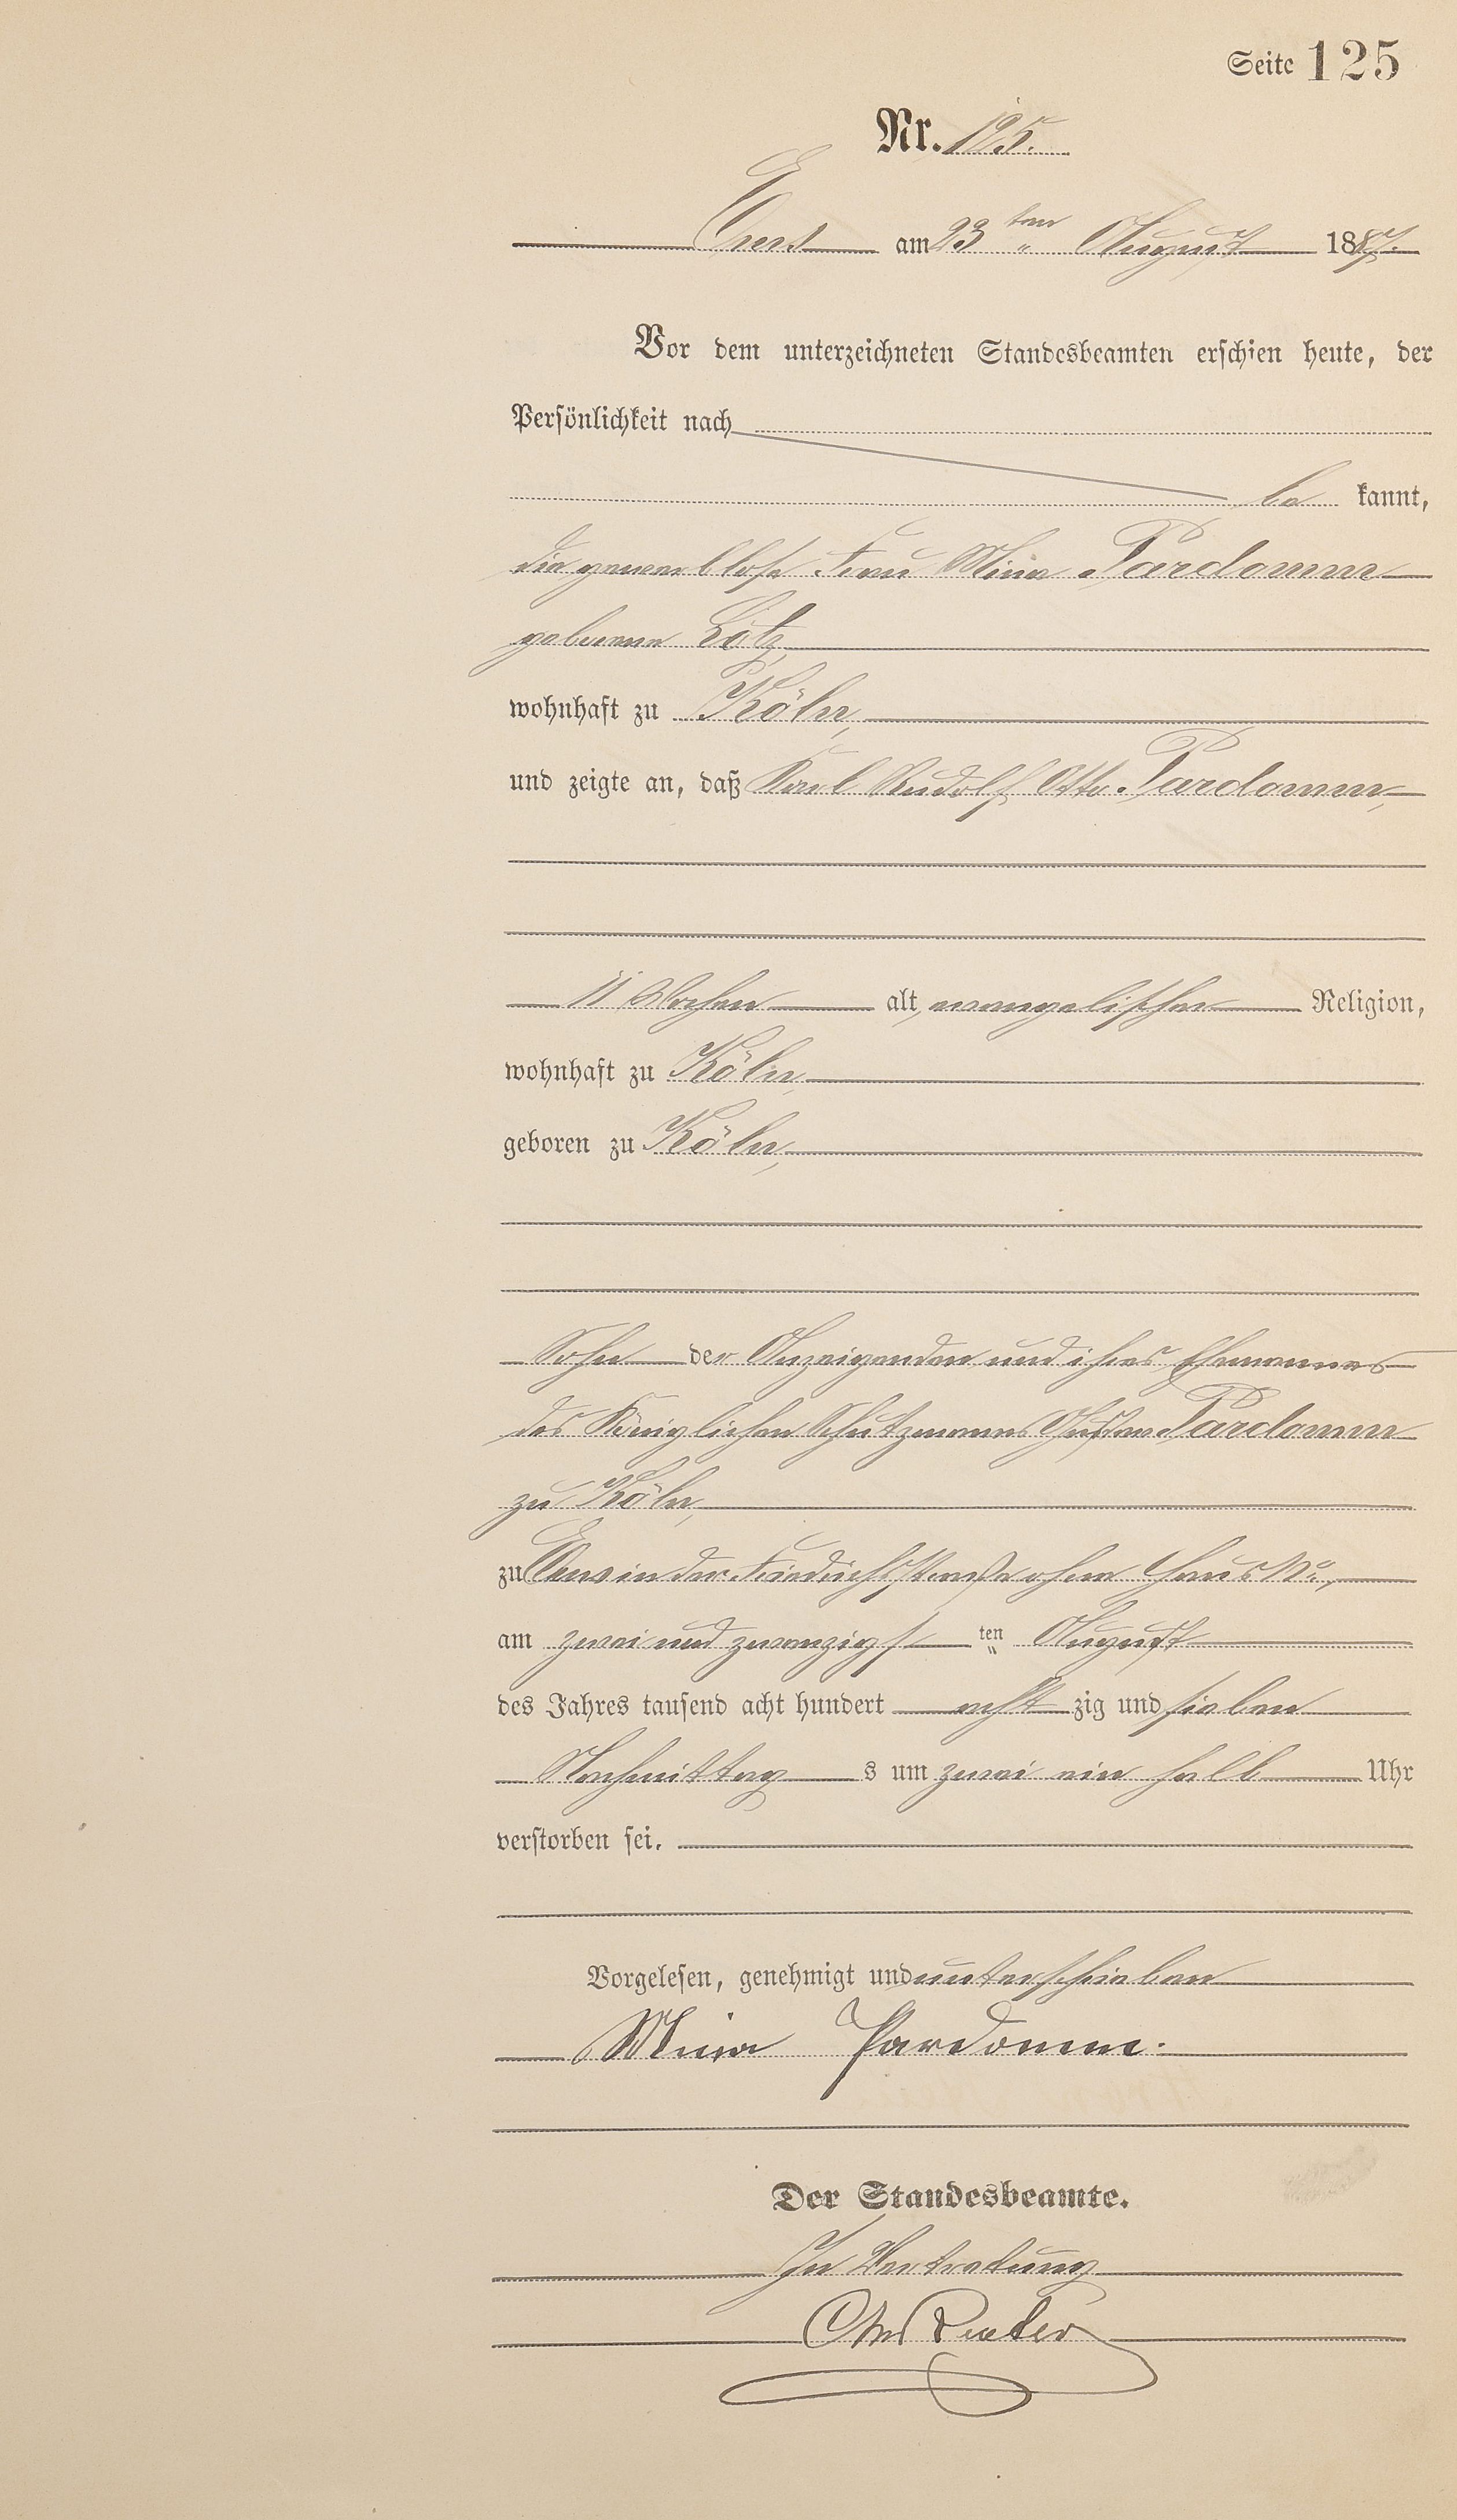 Seite 125
Nr. 125.
am 23 ten August 1887.
Vor dem unterzeichneten Standesbeamten erschien heute, der
Persönlichkeit nach
be kannt,
die gewerblose Frau Mina Pardomm
geborene Lötz,
wohnhaft zu Köln,
und zeigte an, daß Karl Rudolf Otto Pardomm,
11 Wochen alt, evangelischer Religion,
wohnhaft zu Köln,
geboren zu Köln,
Sohn der Anzeigenden und ihres Ehemannes
des Königlichen Schutzmannes Gustav Pardomm
zu Köln,
zu in der Friedrichsstraße ohne Haus No.,
am zwei und zwanzigst ten August
des Jahres tausend acht hundert acht zig und sieben
Nachmittag s um zwei ein halb Uhr
verstorben sei.
Vorgelesen, genehmigt und unterschrieben
Mina Pardomm.
Der Standesbeamte.
In Vertretung